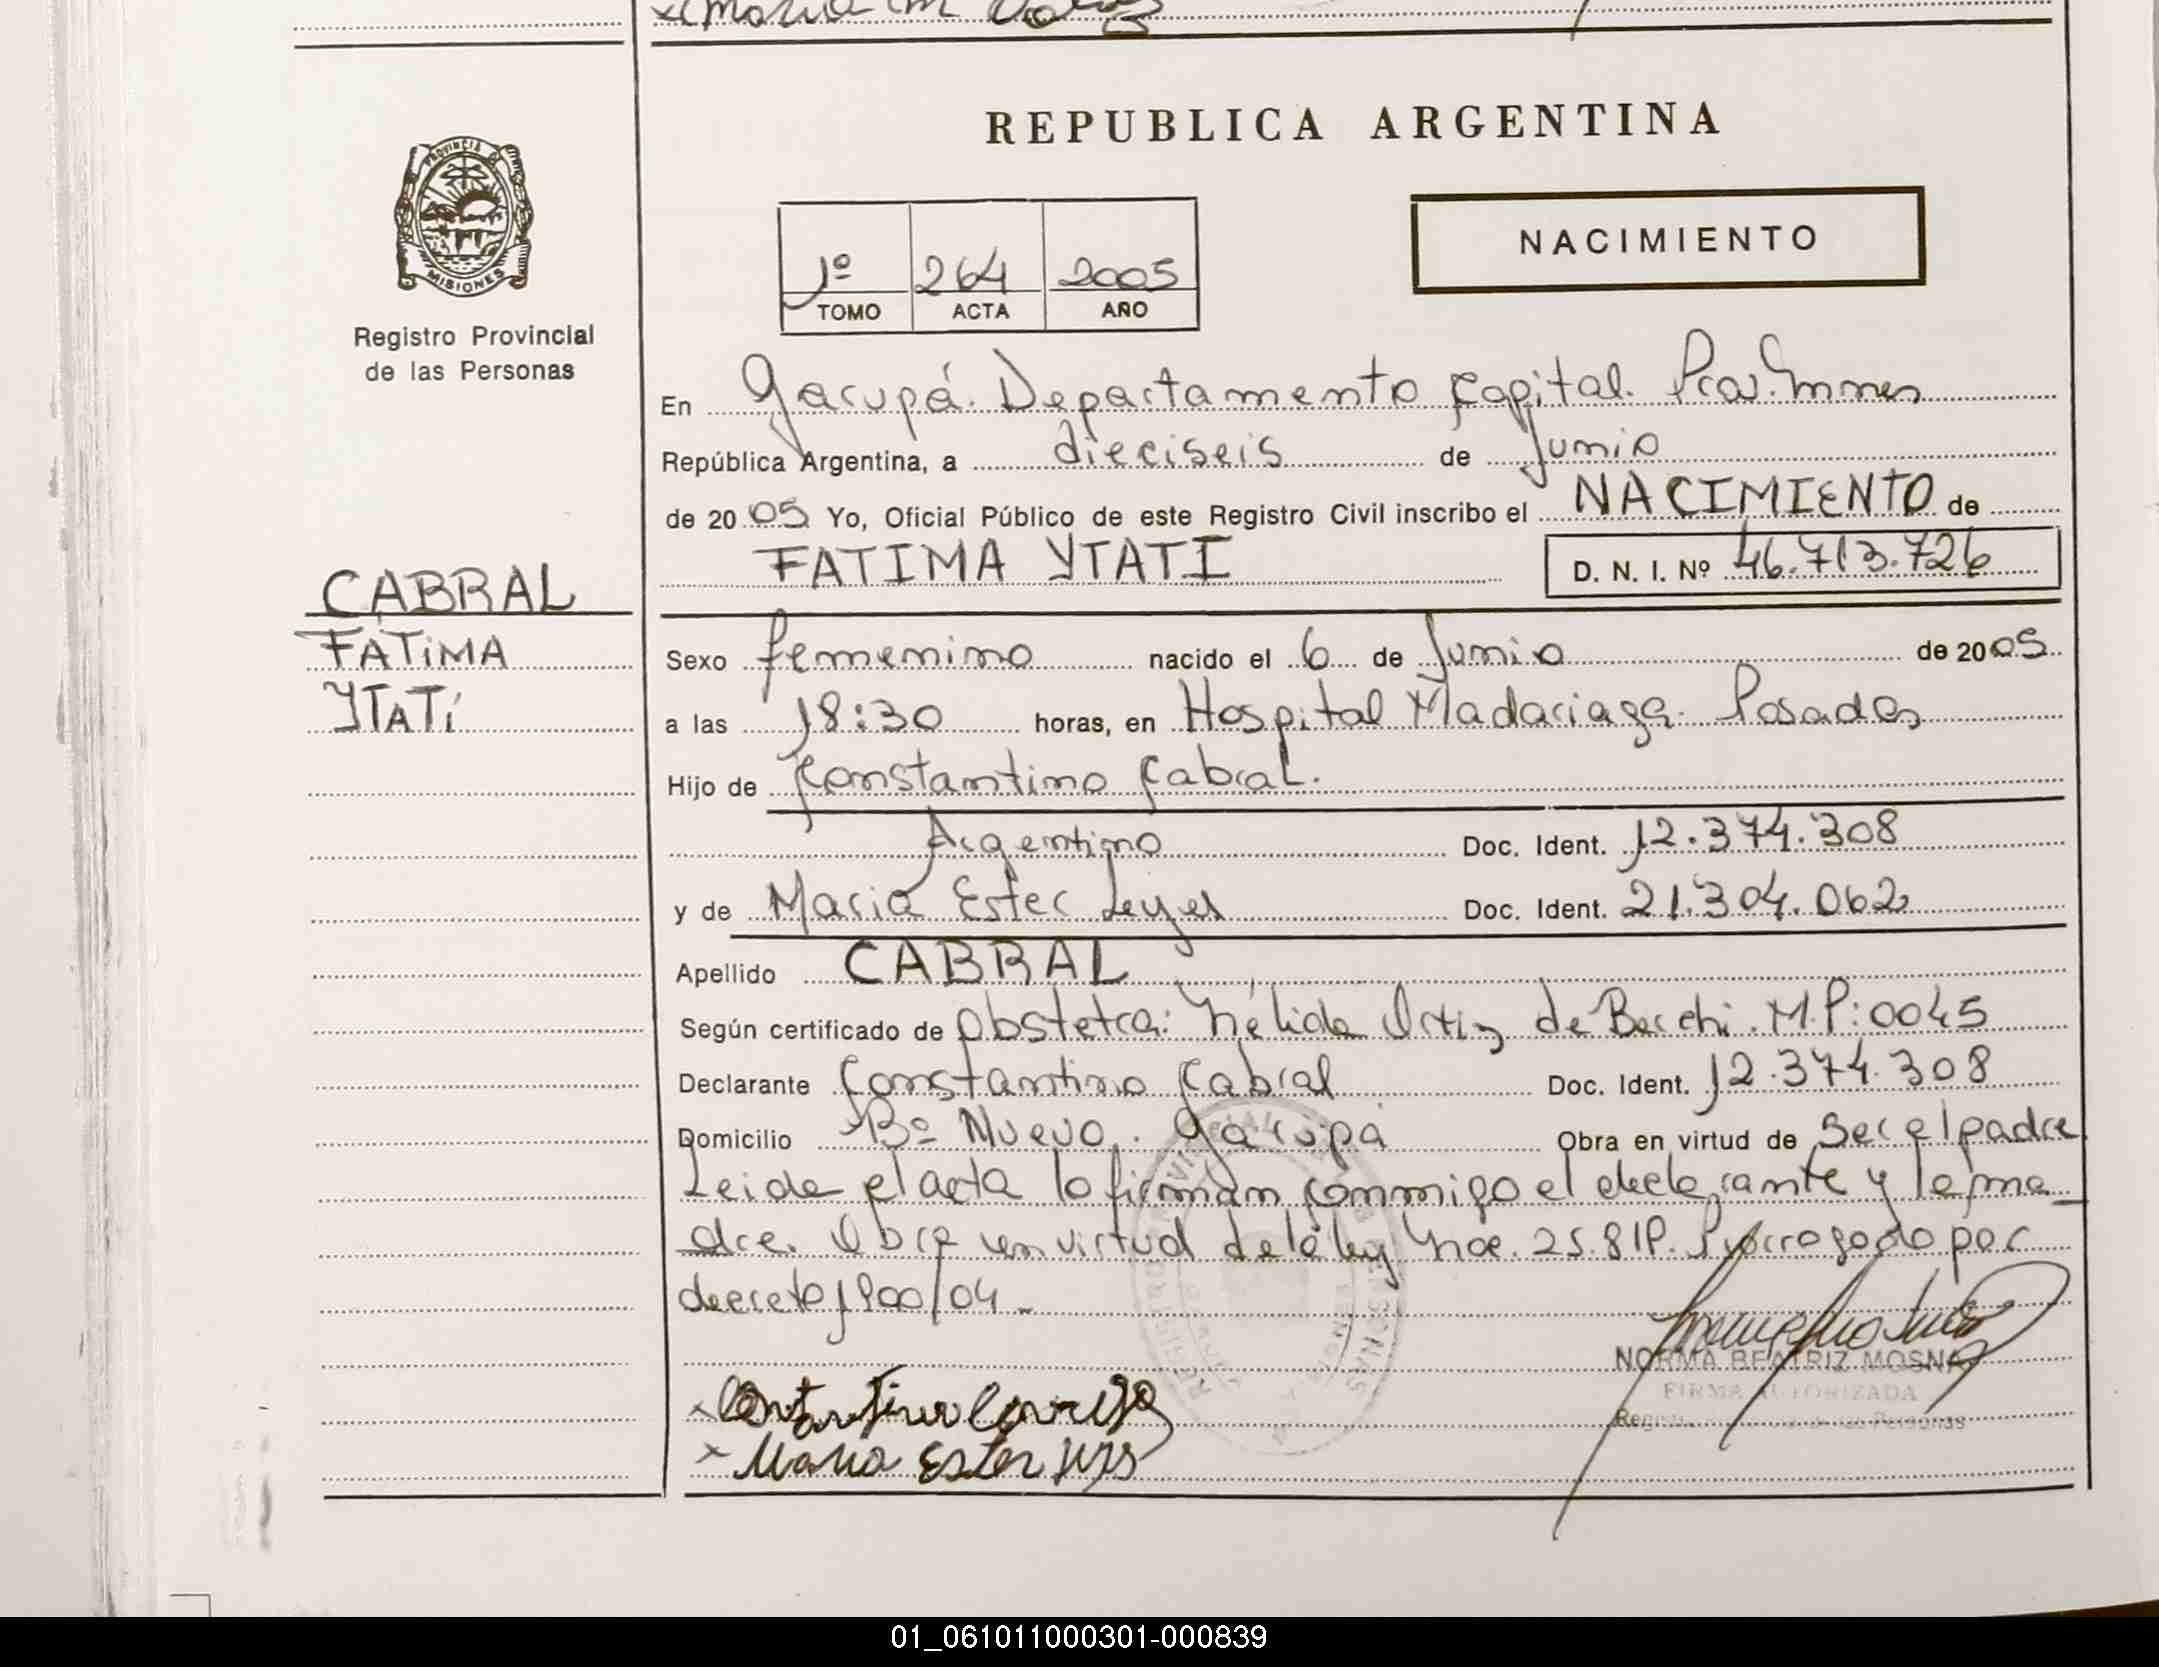 REPUBLICA ARGENTINA
PROVINCIA DE
MISIONES
Registro Provincial
de las Personas
1º 264 2005
TOMO ACTA AÑO
NACIMIENTO
En Garupá. Departamento Capital. Prov. Mnes
República Argentina, a dieciseis de Junio
de 2005 Yo, Oficial Público de este Registro Civil inscribo el NACIMIENTO de
FATIMA YTATI D. N. I. Nº 46.713.726
CABRAL
FATIMA
YTATÍ
Sexo femenino nacido el 6 de Junio de 2005
a las 18:30 horas, en Hospital Madariaga. Posadas
Hijo de Constantino Cabral.
Argentino Doc. Ident. 12.374.308
y de Maria Ester Leyes Doc. Ident. 21.304.062
Apellido CABRAL
Según certificado de Obstetra: Nélida Ortiz de Becchi. M.P: 0045
Declarante Constantino Cabral Doc. Ident. 12.374.308
Domicilio Bº Nuevo. Garupá Obra en virtud de Ser el padre
Leida el acta lo firman conmigo el declarante y la ma_
dre. Obra en virtud de la ley Nac. 25.819. Prorrogado por
decreto 1900/04_
NORMA BEATRIZ MOSNA
FIRMA AUTORIZADA
x Constantino
x Maria Ester
01_061011000301-000839